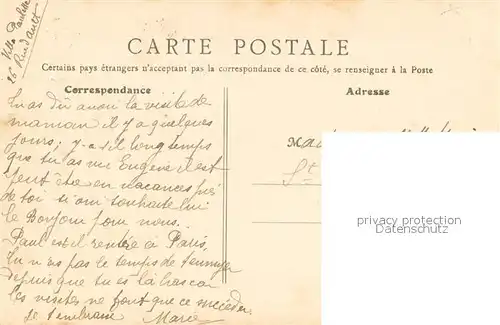 Villa Paulette
16 Rue d'Ault
CARTE POSTALE
Certains pays étrangers n'acceptant pas la correspondance de ce côté, se renseigner à la Poste
Correspondance
Adresse
Tu as dû avoir la visite de
maman il y a quelques
jours; y a-t-il longtemps
que tu as vu Eugène il est
peut être en vacances près
de toi si oui souhaite lui
le Bonjour pour nous.
Paul est il rentré à Paris,
tu n'as pas le temps de t'ennuyer
depuis que tu es là bas car
les visites ne font que se succéder
Je t'embrasse Marie
Ma
St
privacy protection
Datenschutz